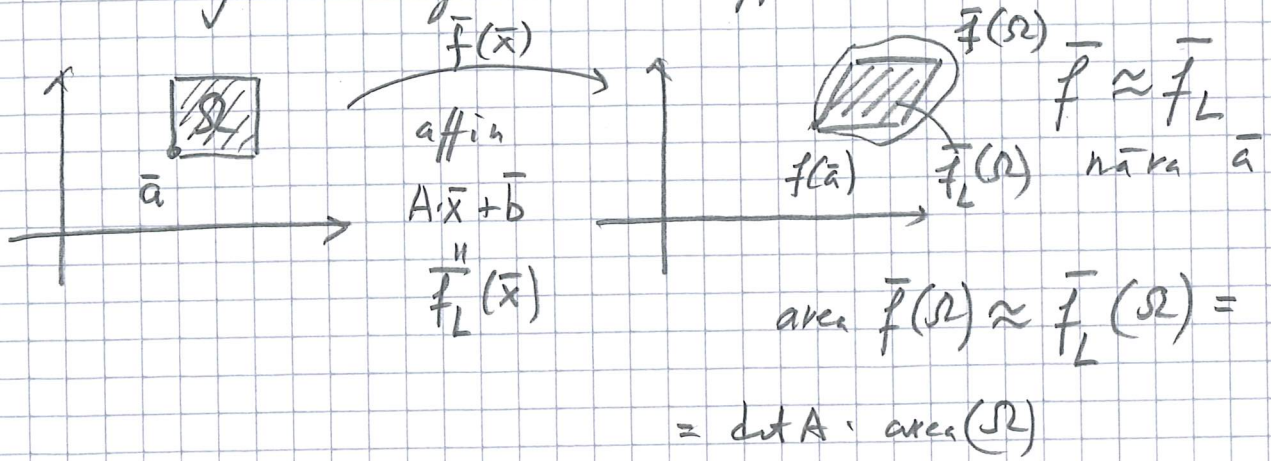 f̄(x̄)
Ω
ā
affin
A·x̄ + b̄
"
f̄_L(x̄)
f̄(Ω)
f(ā)
f̄_L(Ω)
f̄ ≈ f̄_L
nära ā
area f̄(Ω) ≈ f̄_L(Ω) =
= det A · area(Ω)